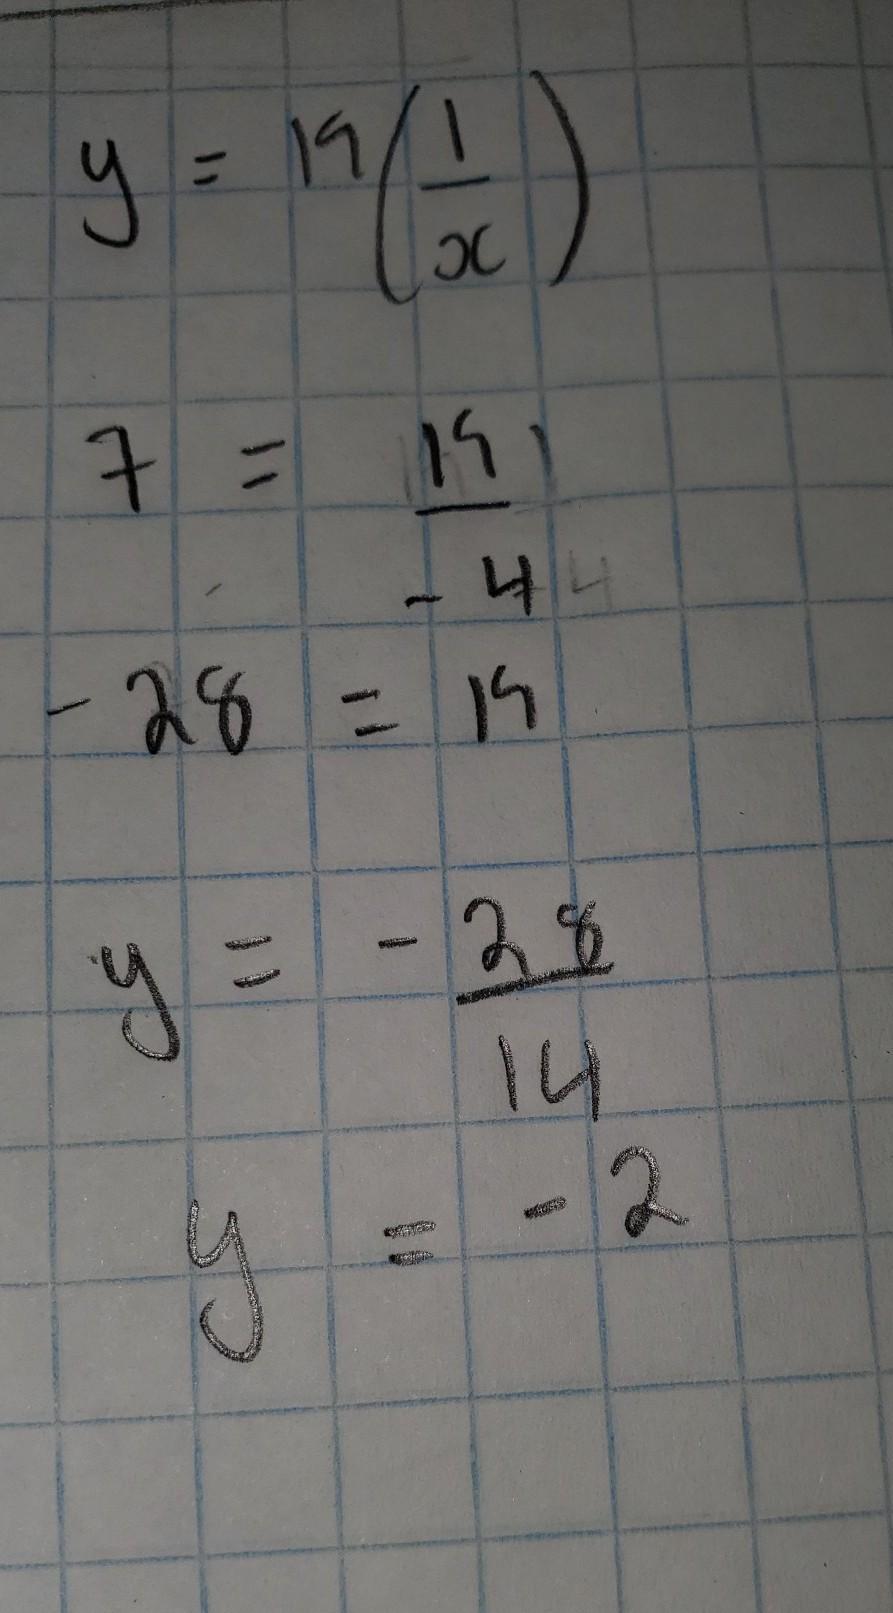 y = 19(1/x)
7 = 19/-4
-28 = 19
y = -28/14
y = -2